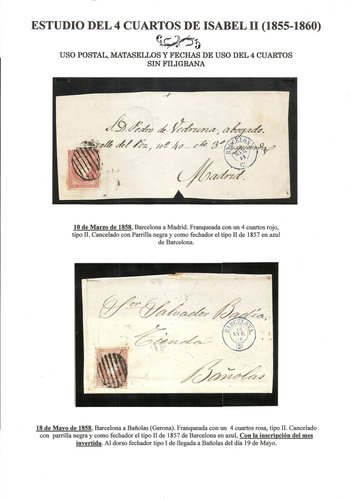 ESTUDIO DEL 4 CUARTOS DE ISABEL II (1855-1860)
USO POSTAL, MATASELLOS Y FECHAS DE USO DEL 4 CUARTOS
SIN FILIGRANA
S. D. Pedro de Vedruna, abogado
calle del Pez, nº 40 cto 3º
Madrid.
BARCELONA
10 de Marzo de 1858, Barcelona a Madrid. Franqueada con un 4 cuartos rojo,
tipo II. Cancelado con Parrilla negra y como fechador el tipo II de 1857 en azul
de Barcelona.
Sor Salvador Badia
Tienda
Bañolas
BARCELONA
18 de Mayo de 1858, Barcelona a Bañolas (Gerona). Franqueada con un 4 cuartos rosa, tipo II. Cancelado
con parrilla negra y como fechador el tipo II de 1857 de Barcelona en azul, Con la inscripción del mes
invertida. Al dorso fechador tipo I de llegada a Bañolas del día 19 de Mayo.